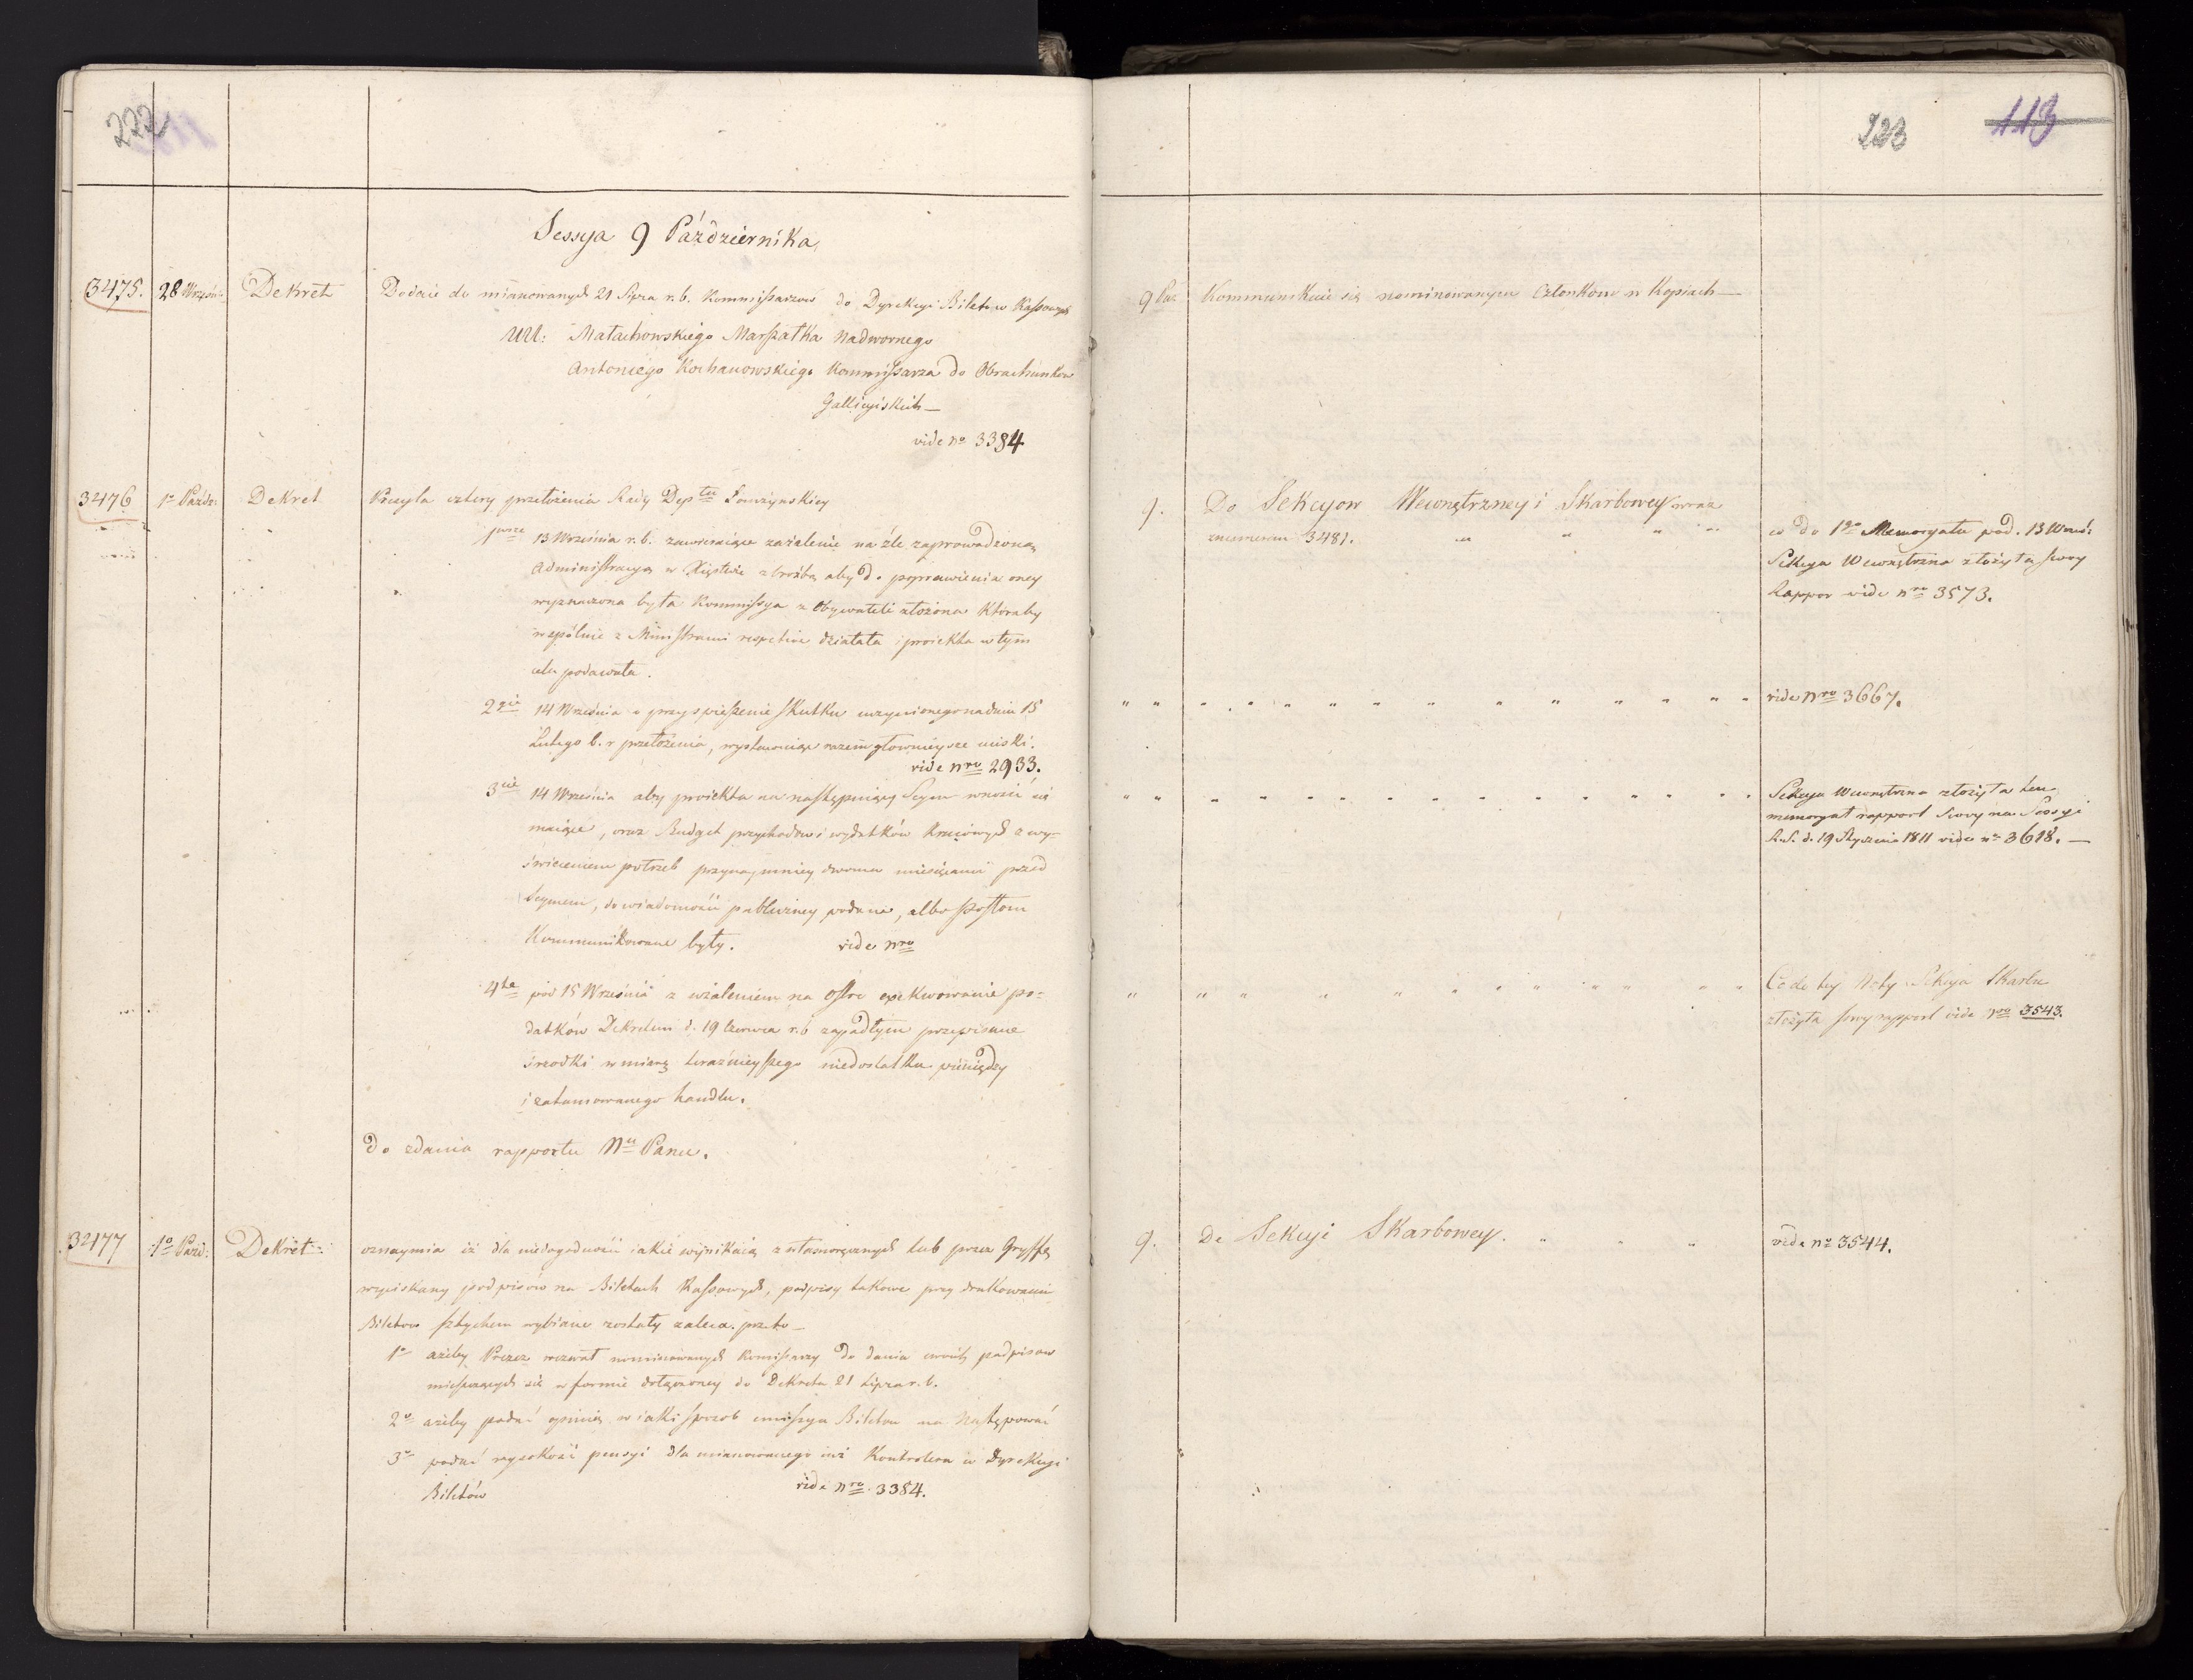 222
Sessya 9 Października
3475. 28 Wrześ: Dekret Dodaie do mianowanych 21 Lipca r. b. Kommissarzow do Dyrekcyi Biletow Kassowych
UU: Małachowskiego Marszałka Nadwornego
Antoniego Kochanowskiego Kommissarza do Obrachunkow
Gallicyiskich —
vide no 3384
3476 1o Paźdz: Dekret Przysyła cztery przełożenia Rady Depttu Łomżyńskiey
1wsze 13 Września r. b. zawieraiące zażalenie na źle zaprowadzoną
administracyą w Xięstwie z prożbą aby do poprawienia oney
wyznaczona była Kommissya z Obywateli złożona któraby
wspólnie z Ministrami respective działała i proiekta w tym
celu podawała.
2gie 14 Września o przyspieszenie skutku uczynionego na dniu 15
Lutego b. r przełożenia, wystawuiąc razem głownieysze uciski.
vide nro 2933.
3cie 14 Września aby proiekta na następuiący Seym wnosić się
maiące, oraz Budget przychodow i wydatków kraiowych z wy-
świeceniem potrzeb przynaymniey dwoma miesiącami przed
Seymem, do wiadomości publiczney podane, albo Posłom
Kommunikowane były. vide nro
4te pod 15 Września z użaleniem na ostre exekwowanie po-
datków Dekretem d. 19 Czerwca r. b zapadłym przepisane
śrzodki w miarę teraźnieyszego niedostatku pieniędzy
i zatamowanego handlu.
do zdania rapportu Nu Panu.
3477 1o Paźd: Dekret oznaymia iż dla niedogodności iakie wynikaią z własnoręcznych lub przez Gryffę
wyciskany podpisów na Biletach Kassowych, podpisy takowe przy drukowaniu
Biletow sztychem wybiane zostały zaleca. przeto —
1o ażeby Prezes wezwał nominowanych Komissarzy do dania swoich podpisow
mieszczących się w formie dołączoney do Dekretu 21 Lipca r. b.
2o ażeby podać opinię w iaki sposob emissya Biletow ma następować
3o podać wysokość pensyi dla mianowanego iuż Kontrolera w Dyrekcyi
Biletów vide nro 3384.
223 113
9 Paź Kommunikuie się nominowanym Członkom w Kopiach —
9. Do Sekcyow Wewnętrzney i Skarbowey wraz
z numerem 3481. " " " " "
co do 1go Memoryału pod. 13 Wrześ:
Sekcya Wewnętrzna złożyła swoy
Rappor vide nro 3573.
vide Nro 3667.
Sekcya Wewnętrzna złożyła ten
memoryał rapport swoy na Sessyi
R. S. d. 19 Stycznia 1811 vide no 3618. —
Co do tey Noty Sekcya Skarbu
złożyła swoy rapport vide Nro 3543.
9. Do Sekcyi Skarbowey. " " "
vide no 3544.